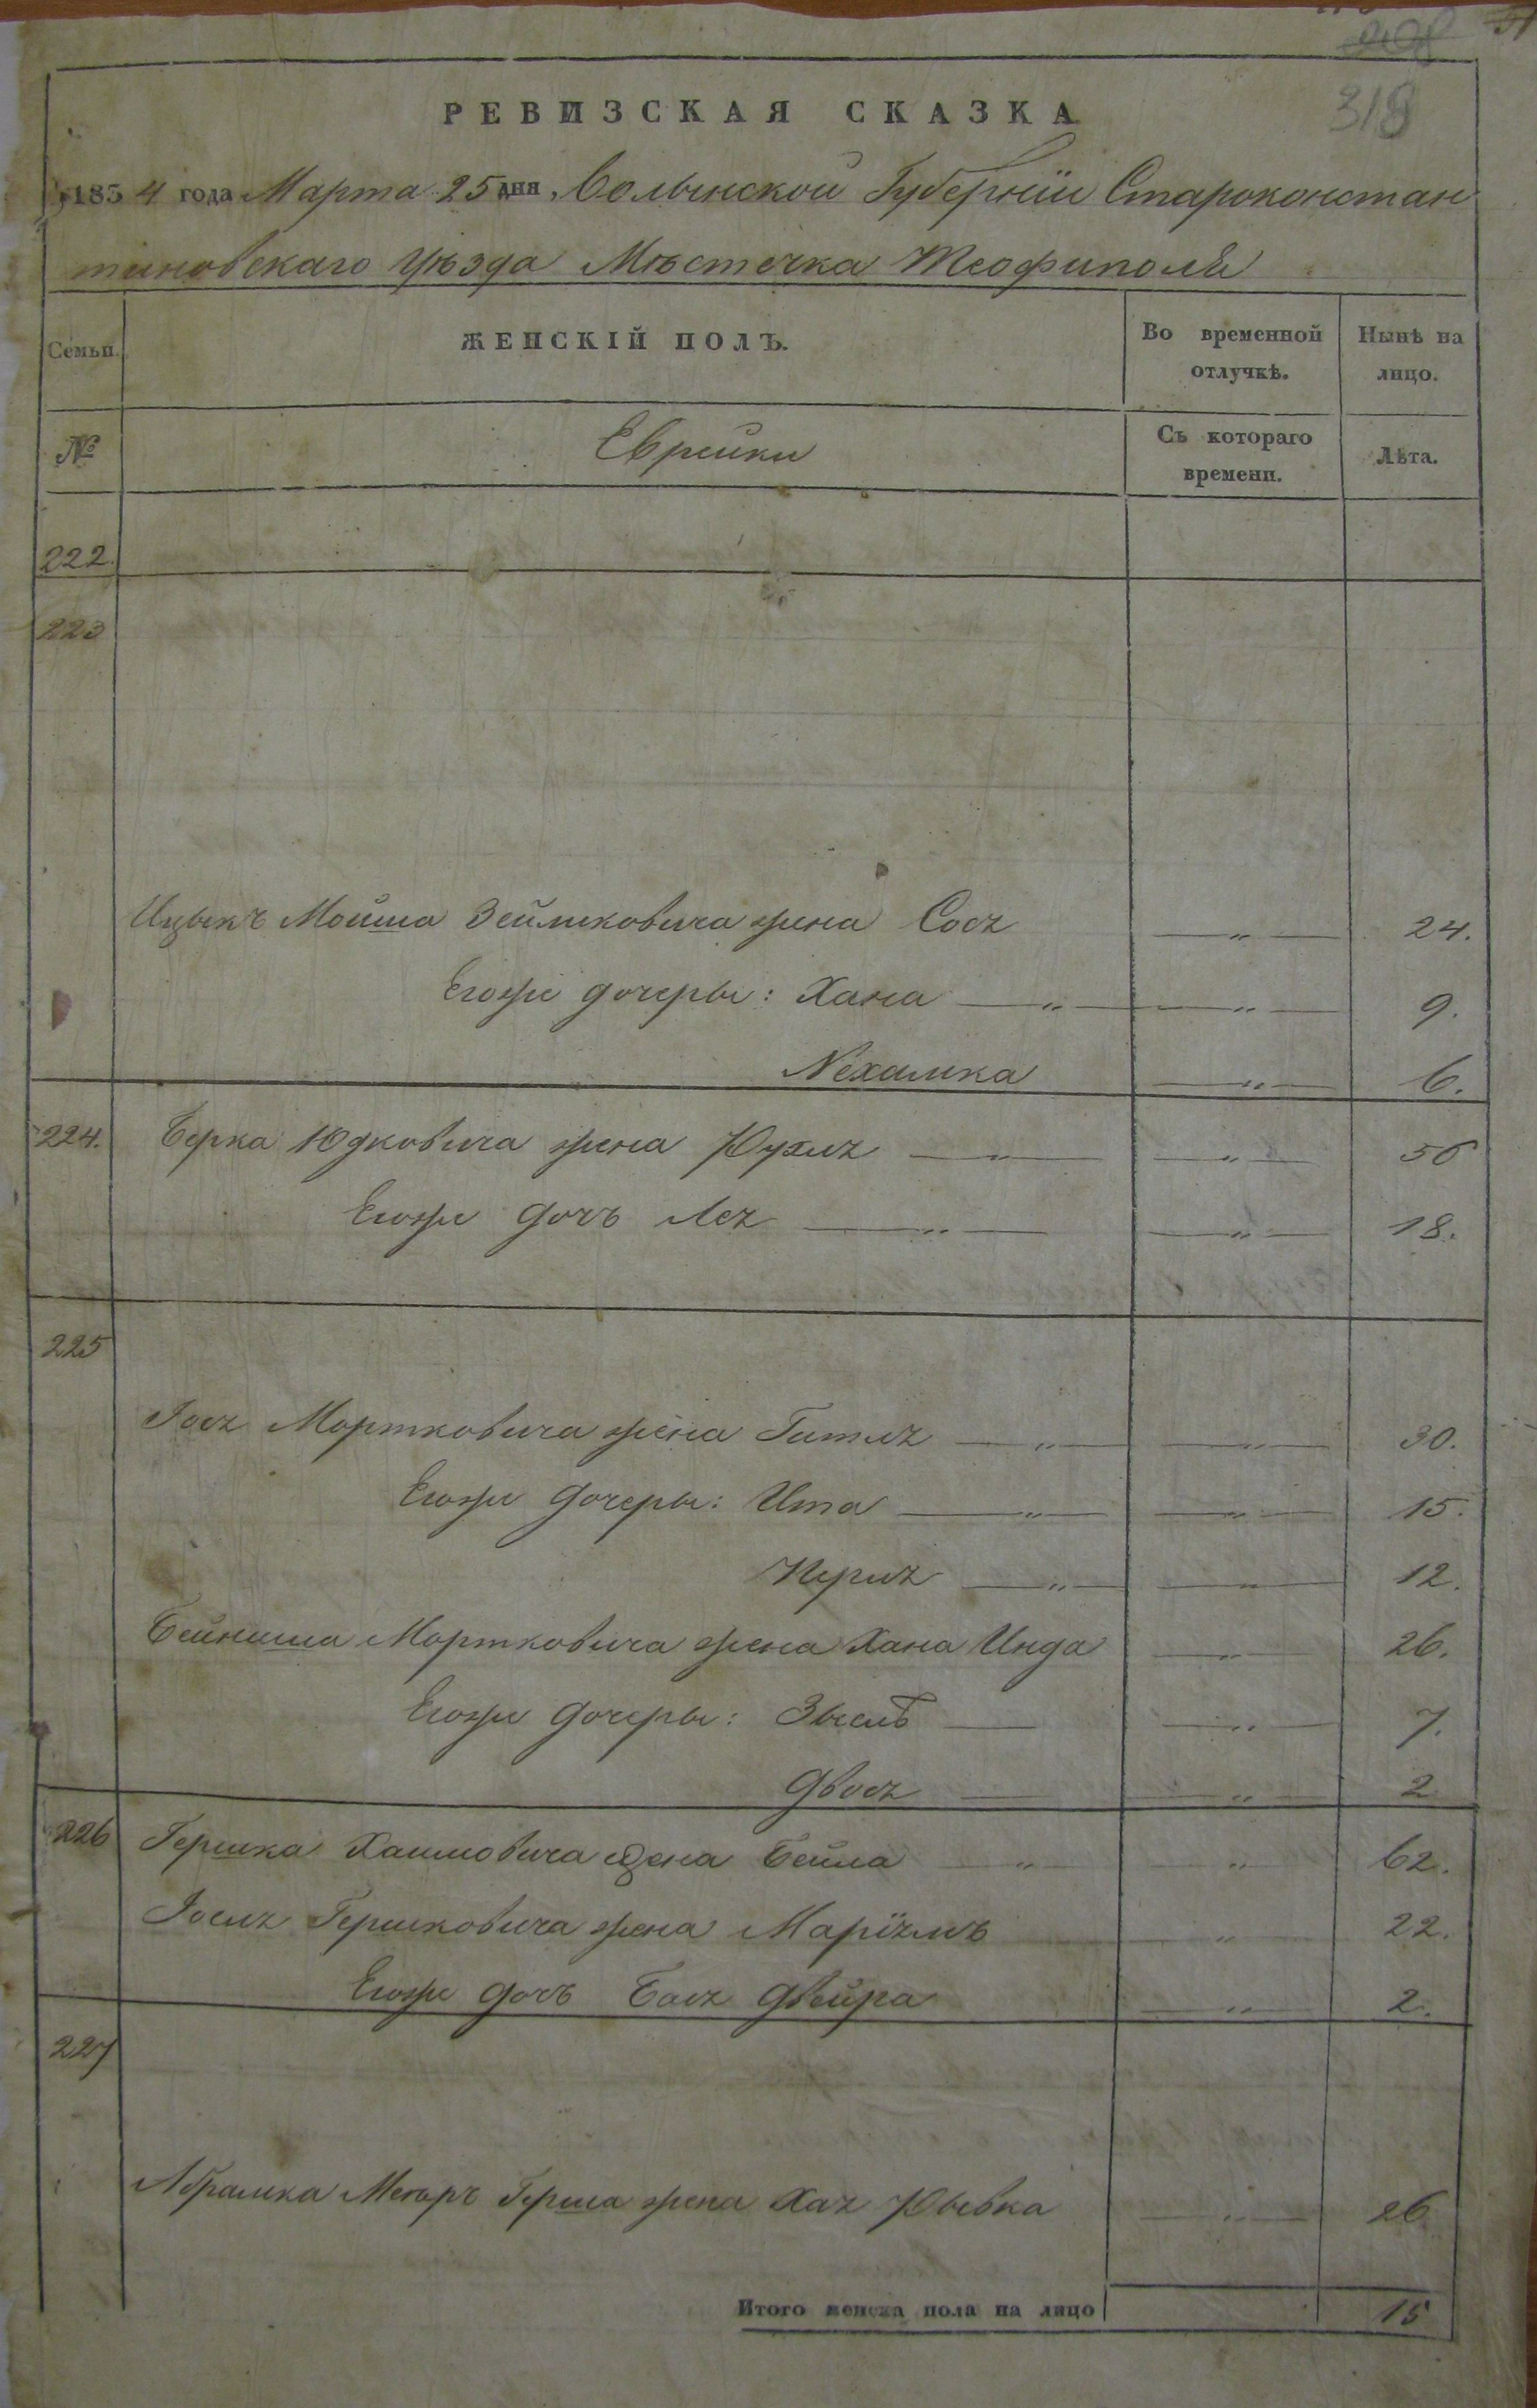 318
РЕВИЗСКАЯ СКАЗКА
1854 года Марта 25 дня, Волынской Губерніи Староконстан
тиновскаго Уѣзда Мѣстечка Теофиполя
Семьи. ЖЕНСКІЙ ПОЛЪ. Во временной отлучкѣ. Нынѣ на лицо.
№ Еврейки Съ котораго времени. Лѣта.
222.
223
Ицыкъ Мойша Зейликовича жена Сося — „ — 24.
Егоже дочеры: Хана — „ — — „ — 9.
Нехамка — „ — 6.
224. Берка Юдковича жена Рухля — „ — — „ — 56
Егоже дочъ Лея — „ — — „ — 18.
225
Іося Мортковича жена Гитля — „ — — „ — 30.
Егоже дочеры: Ита — „ — — „ — 15.
Перля — „ — — „ — 12.
Бейниша Мортковича жена Хана Инда — „ — 26.
Егоже дочеры: Зысль — — „ — 7.
Двося — — „ — 2
226 Гершка Хаимовича жена Бейла — „ — — „ — 62.
Іосля Гершковича жена Маріямъ — „ — 22.
Егоже дочъ Бася Двейра — „ — 2.
227
Абрамка Меѣръ Герша жена Хая Рывка — „ — 26
Итого женска пола на лицо 15